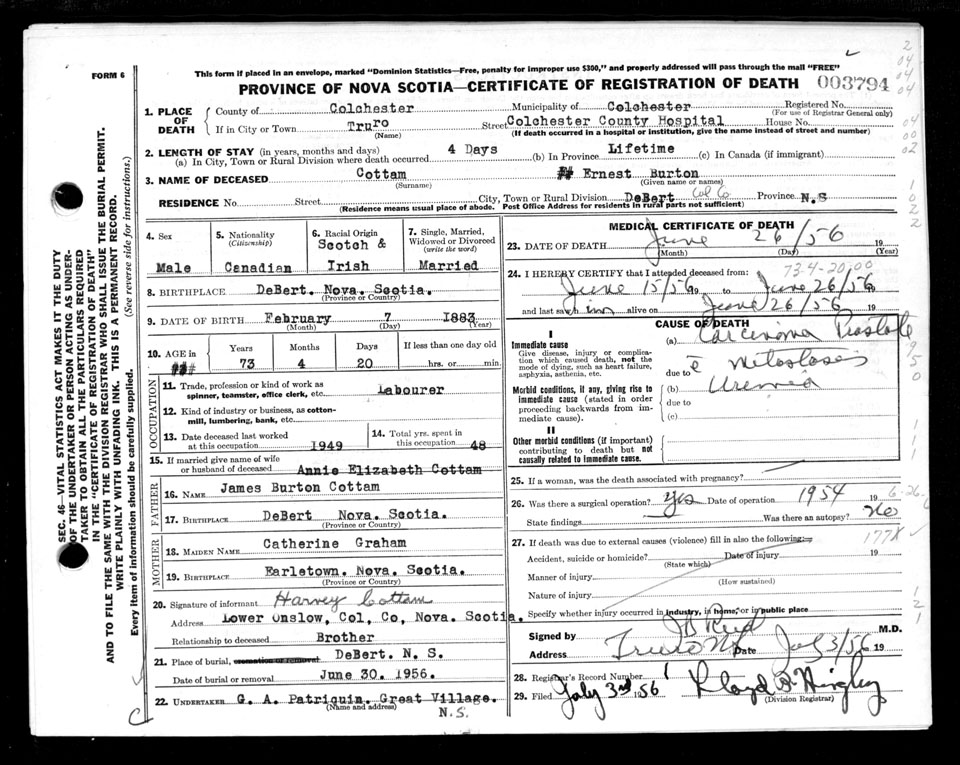 FORM 6
This form if placed in an envelope, marked "Dominion Statistics—Free, penalty for improper use $300," and properly addressed will pass through the mail "FREE"
PROVINCE OF NOVA SCOTIA—CERTIFICATE OF REGISTRATION OF DEATH 003794
1. PLACE OF DEATH
County of Colchester Municipality of Colchester Registered No.
(For use of Registrar General only)
If in City or Town Truro Street Colchester County Hospital House No.
(Name) (If death occurred in a hospital or institution, give the name instead of street and number)
2. LENGTH OF STAY (in years, months and days)
(a) In City, Town or Rural Division where death occurred 4 Days (b) In Province Lifetime (c) In Canada (if immigrant)
3. NAME OF DECEASED Cottam Ernest Burton
(Surname) (Given name or names)
RESIDENCE No. Street City, Town or Rural Division DeBert Col Co Province N.S
(Residence means usual place of abode. Post Office Address for residents in rural parts not sufficient)
4. Sex Male
5. Nationality (Citizenship) Canadian
6. Racial Origin Scotch & Irish
7. Single, Married, Widowed or Divorced (write the word) Married
8. BIRTHPLACE DeBert. Nova. Scotia.
(Province or Country)
9. DATE OF BIRTH February 7 1883
(Month) (Day) (Year)
10. AGE in Years Months Days If less than one day old
73 4 20 hrs. or min.
OCCUPATION
11. Trade, profession or kind of work as spinner, teamster, office clerk, etc. Labourer
12. Kind of industry or business, as cotton-mill, lumbering, bank, etc.
13. Date deceased last worked at this occupation 1949
14. Total yrs. spent in this occupation 48
15. If married give name of wife or husband of deceased Annie Elizabeth Cottam
FATHER
16. NAME James Burton Cottam
17. BIRTHPLACE DeBert Nova. Scotia.
(Province or Country)
MOTHER
18. MAIDEN NAME Catherine Graham
19. BIRTHPLACE Earletown. Nova. Scotia.
(Province or Country)
20. Signature of informant Harvey Cottam
Address Lower Onslow, Col, Co, Nova. Scotia.
Relationship to deceased Brother
21. Place of burial, cremation or removal DeBert. N. S.
Date of burial or removal June 30. 1956.
22. UNDERTAKER G. A. Patriquin. Great Village.
(Name and address) N.S.
MEDICAL CERTIFICATE OF DEATH
23. DATE OF DEATH June 26/56 19
(Month) (Day) (Year)
73-4-20-00
24. I HEREBY CERTIFY that I attended deceased from:
June 15/56 19 to June 26/56 19
and last saw him alive on June 26/56 19
CAUSE OF DEATH
I
Immediate cause
Give disease, injury or complication which caused death, not the mode of dying, such as heart failure, asphyxia, asthenia, etc.
(a) Carcinoma Prostate
due to c̄ Metastases
Morbid conditions, if any, giving rise to immediate cause (stated in order proceeding backwards from immediate cause).
(b) Uremia
due to
(c)
II
Other morbid conditions (if important) contributing to death but not causally related to immediate cause.
25. If a woman, was the death associated with pregnancy?
26. Was there a surgical operation? Yes Date of operation 1954 19
State findings Was there an autopsy? No
6-26-
27. If death was due to external causes (violence) fill in also the following:—
177X
Accident, suicide or homicide? Date of injury 19
(State which)
Manner of injury
(How sustained)
Nature of injury
Specify whether injury occurred in industry, in home, or in public place
Signed by M.D.
Address Truro NS Date July 3/56 19
28. Registrar's Record Number
29. Filed July 3rd 1956 Lloyd Hingley
(Division Registrar)
SEC. 46—VITAL STATISTICS ACT MAKES IT THE DUTY
OF THE UNDERTAKER OR PERSON ACTING AS UNDER-
TAKER TO OBTAIN ALL THE PARTICULARS REQUIRED
IN THE "CERTIFICATE OF REGISTRATION OF DEATH"
AND TO FILE THE SAME WITH THE DIVISION REGISTRAR WHO SHALL ISSUE THE BURIAL PERMIT.
WRITE PLAINLY WITH UNFADING INK. THIS IS A PERMANENT RECORD.
Every item of information should be carefully supplied. (See reverse side for instructions.)